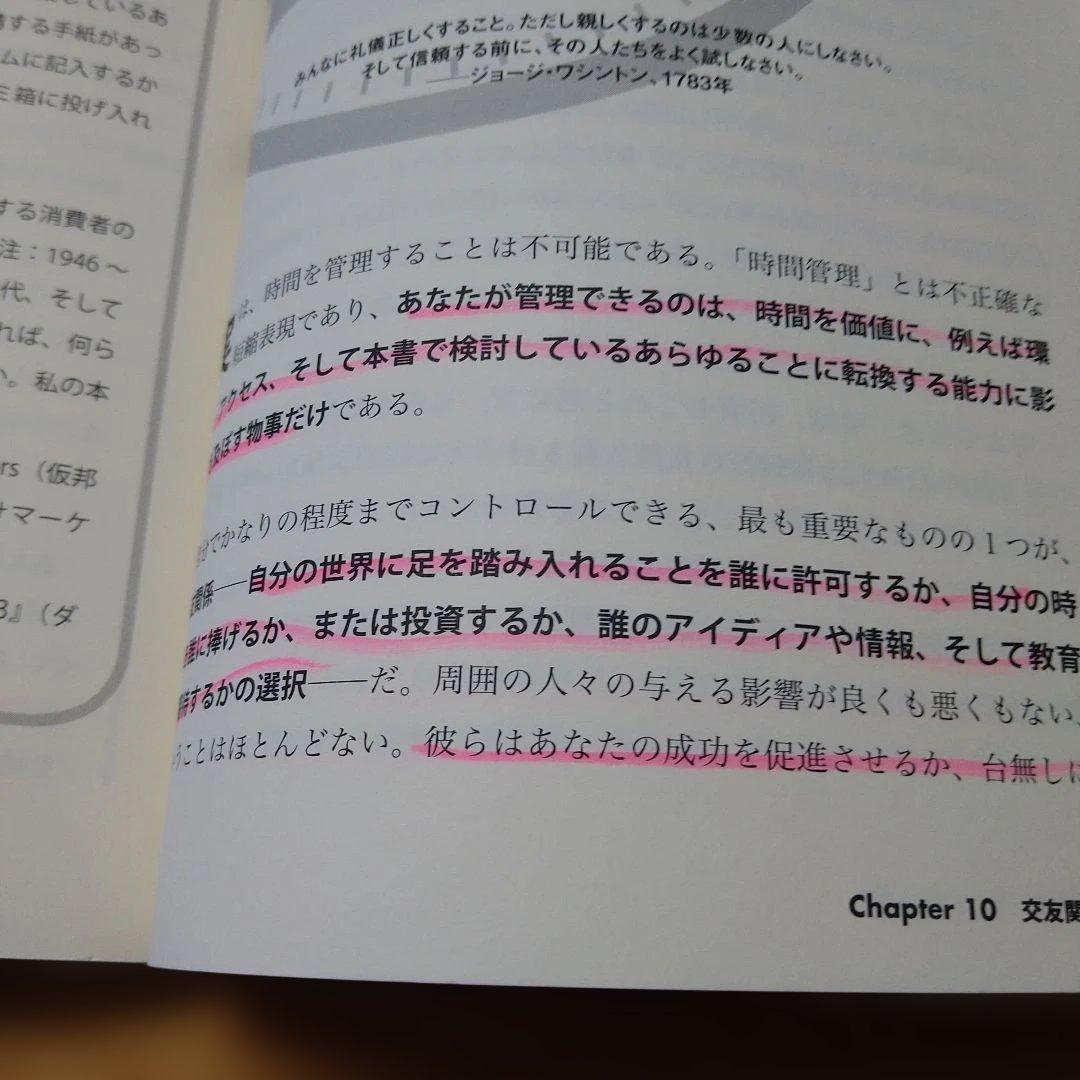 ているあ
する手紙があっ
ムに記入するか
ミ箱に投げ入れ
する消費者の
注：1946～
代、そして
れば、何ら
い。私の本
rs（仮邦
ナマーケ
3』（ダ
みんなに礼儀正しくすること。ただし親しくするのは少数の人にしなさい。
そして信頼する前に、その人たちをよく試しなさい。
――ジョージ・ワシントン、1783年
は、時間を管理することは不可能である。「時間管理」とは不正確な
短縮表現であり、あなたが管理できるのは、時間を価値に、例えば環
アクセス、そして本書で検討しているあらゆることに転換する能力に影
及ぼす物事だけである。
分でかなりの程度までコントロールできる、最も重要なものの1つが、
関係――自分の世界に足を踏み入れることを誰に許可するか、自分の時
誰に捧げるか、または投資するか、誰のアイディアや情報、そして教育
するかの選択――だ。周囲の人々の与える影響が良くも悪くもない、
うことはほとんどない。彼らはあなたの成功を促進させるか、台無しに
Chapter 10 交友関